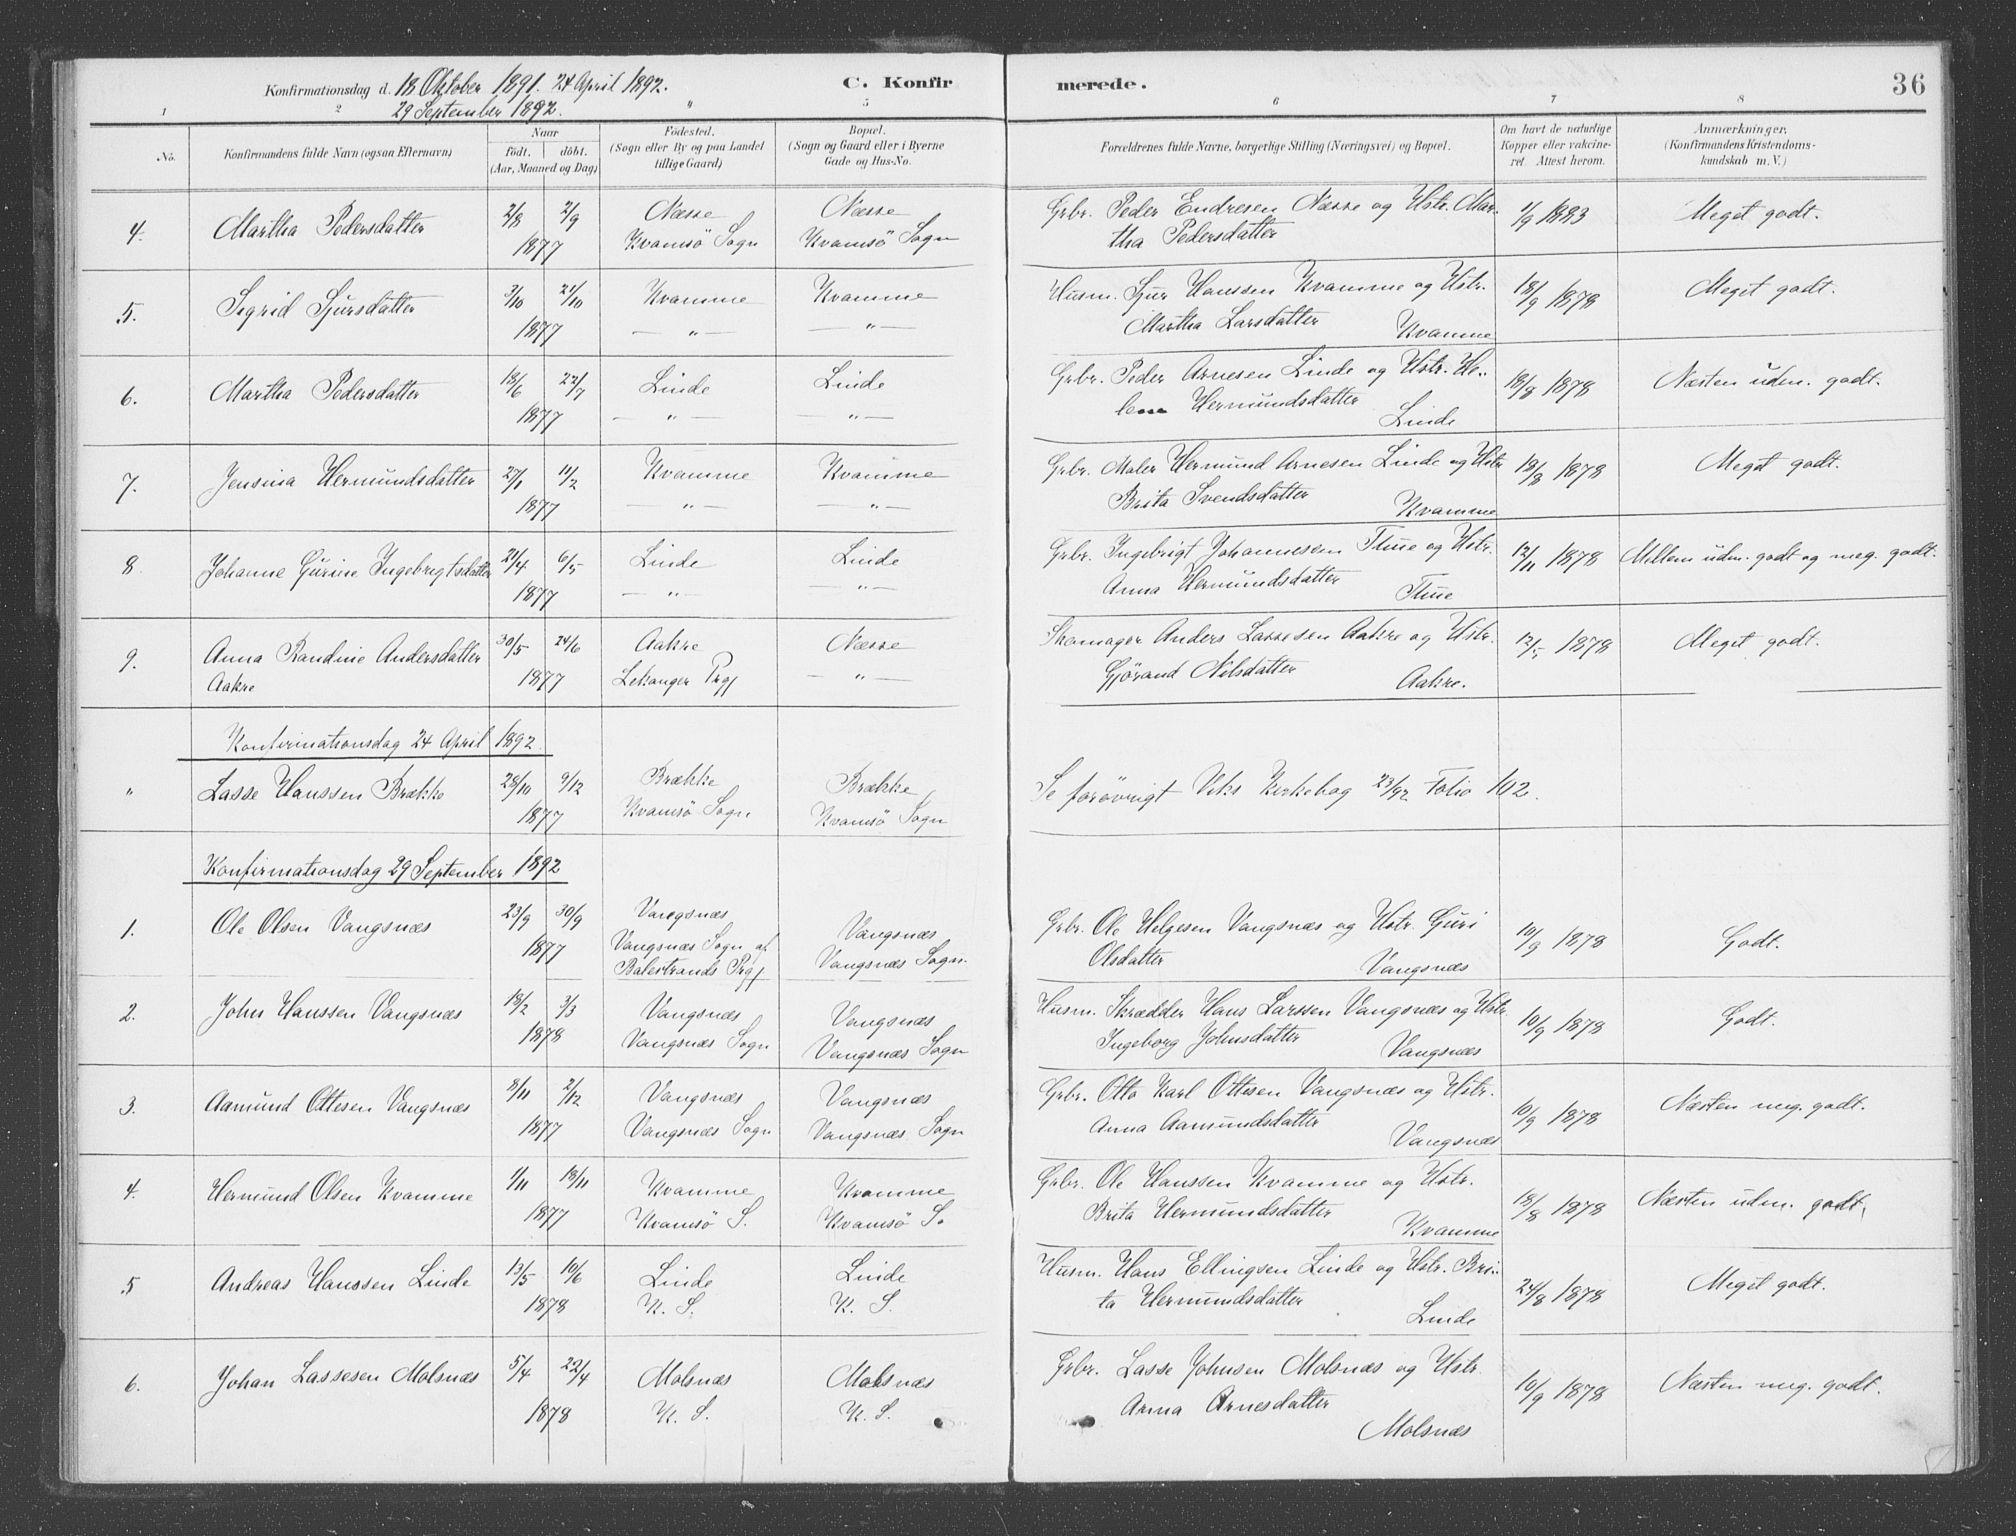 Konfirmationsdag d. 18 Oktober 1891. 24 April 1892. C. Konfirmerede. 36
29 September 1892.
1 2 5 6 7 8
No. Konfirmandens fulde Navn (ogsaa Efternavn) Naar födt. döbt. (Aar, Maaned og Dag) Födested. (Sogn eller By og paa Landet tillige Gaard) Bopæl. (Sogn og Gaard eller i Byerne Gade og Hus-No. Forældrenes fulde Navne, borgerlige Stilling (Næringsvei) og Bopæl. Om havt de naturlige Kopper eller vakcineret. Attest herom. Anmærkninger. (Konfirmandens Kristendomskundskab m. V.)
4. Martha Pedersdatter 2/8 2/9 Næsse Næsse Grbr. Peder Endresen Næsse og Hstr. Mar- 1/9 1883 Meget godt.
1877 Kvamsö Sogn Kvamsö Sogn tha Pedersdatter
5. Sigrid Sjursdatter 3/10 21/10 Kvamme Kvamme Husm. Sjur Hanssen Kvamme og Hstr. 18/9 1878 Meget godt.
1877 — " — — " — Martha Larsdatter Kvamme
6. Martha Pedersdatter 18/6 22/7 Linde Linde Grbr. Peder Arnesen Linde og Hstr. He- 18/8 1878 Næsten udm. godt.
1877 — " — — " — lene Hermundsdatter Linde
7. Jensina Hermundsdatter 27/1 11/2 Kvamme Kvamme Grbr. Maler Hermund Arnesen Linde og Hstr 18/8 1878 Meget godt.
1877 — " — — " — Brita Svendsdatter Kvamme
8. Johanne Gurine Ingebrigtsdatter 21/4 6/5 Linde Linde Grbr. Ingebrigt Johannesen Thue og Hstr. 12/11 1878 Mellem udm. godt og meg. godt.
1877 — " — — " — Anna Hermundsdatter Thue
9. Anna Randine Andersdatter 30/5 24/6 Aakre Næsse Skomager Anders Lassesen Aakre og Hstr. 12/5 1878 Meget godt.
Aakre 1877 Lekanger Prgj — " — Gjörand Nilsdatter Aakre.
Konfirmationsdag 24 April 1892
" Lasse Hanssen Brække 28/10 9/12 Brække Brække Se forövrigt Viks Kirkebog 23/92 Folio 102.
1877 Kvamsö Sogn Kvamsö Sogn
Konfirmationsdag 29 September 1892
1. Ole Olsen Vangsnæs 23/9 30/9 Vangsnæs Vangsnæs Grbr. Ole Helgesen Vangsnæs og Hstr. Guri 10/9 1878 Godt.
1877 Vangsnæs Sogn af Vangsnæs Sogn. Olsdatter Vangsnæs
Balestrands Prgj
2. John Hanssen Vangsnæs 18/2 3/3 Vangsnæs Vangsnæs Husm. Skrædder Hans Larssen Vangsnæs og Hstr. 10/9 1878 Godt.
1878 Vangsnæs Sogn Vangsnæs Sogn Ingeborg Johnsdatter Vangsnæs
3. Aamund Ottesen Vangsnæs 8/11 2/12 Vangsnæs Vangsnæs Grbr. Otto Karl Ottesen Vangsnæs og Hstr. 10/9 1878 Næsten meg. godt.
1877 Vangsnæs Sogn Vangsnæs Sogn Anna Aamundsdatter Vangsnæs
4. Hermund Olsen Kvamme 1/11 18/11 Kvamme Kvamme Grbr. Ole Hanssen Kvamme og Hstr. 18/8 1878 Næsten udm. godt.
1877 Kvamsö S. Kvamsö S. Brita Hermundsdatter Kvamme
5 Andreas Hanssen Linde 13/5 10/6 Linde Linde Husm. Hans Ellingsen Linde og Hstr. Bri- 24/8 1878 Meget godt.
1878 K. S. K. S. ta Hermundsdatter Linde
6. Johan Lassesen Molsnæs 5/4 22/4 Molsnæs Molsnæs Grbr. Lasse Johnsen Molsnæs og Hstr. 10/9 1878 Næsten meg. godt.
1878 K. S. K. S. Anna Arnesdatter
Molsnæs